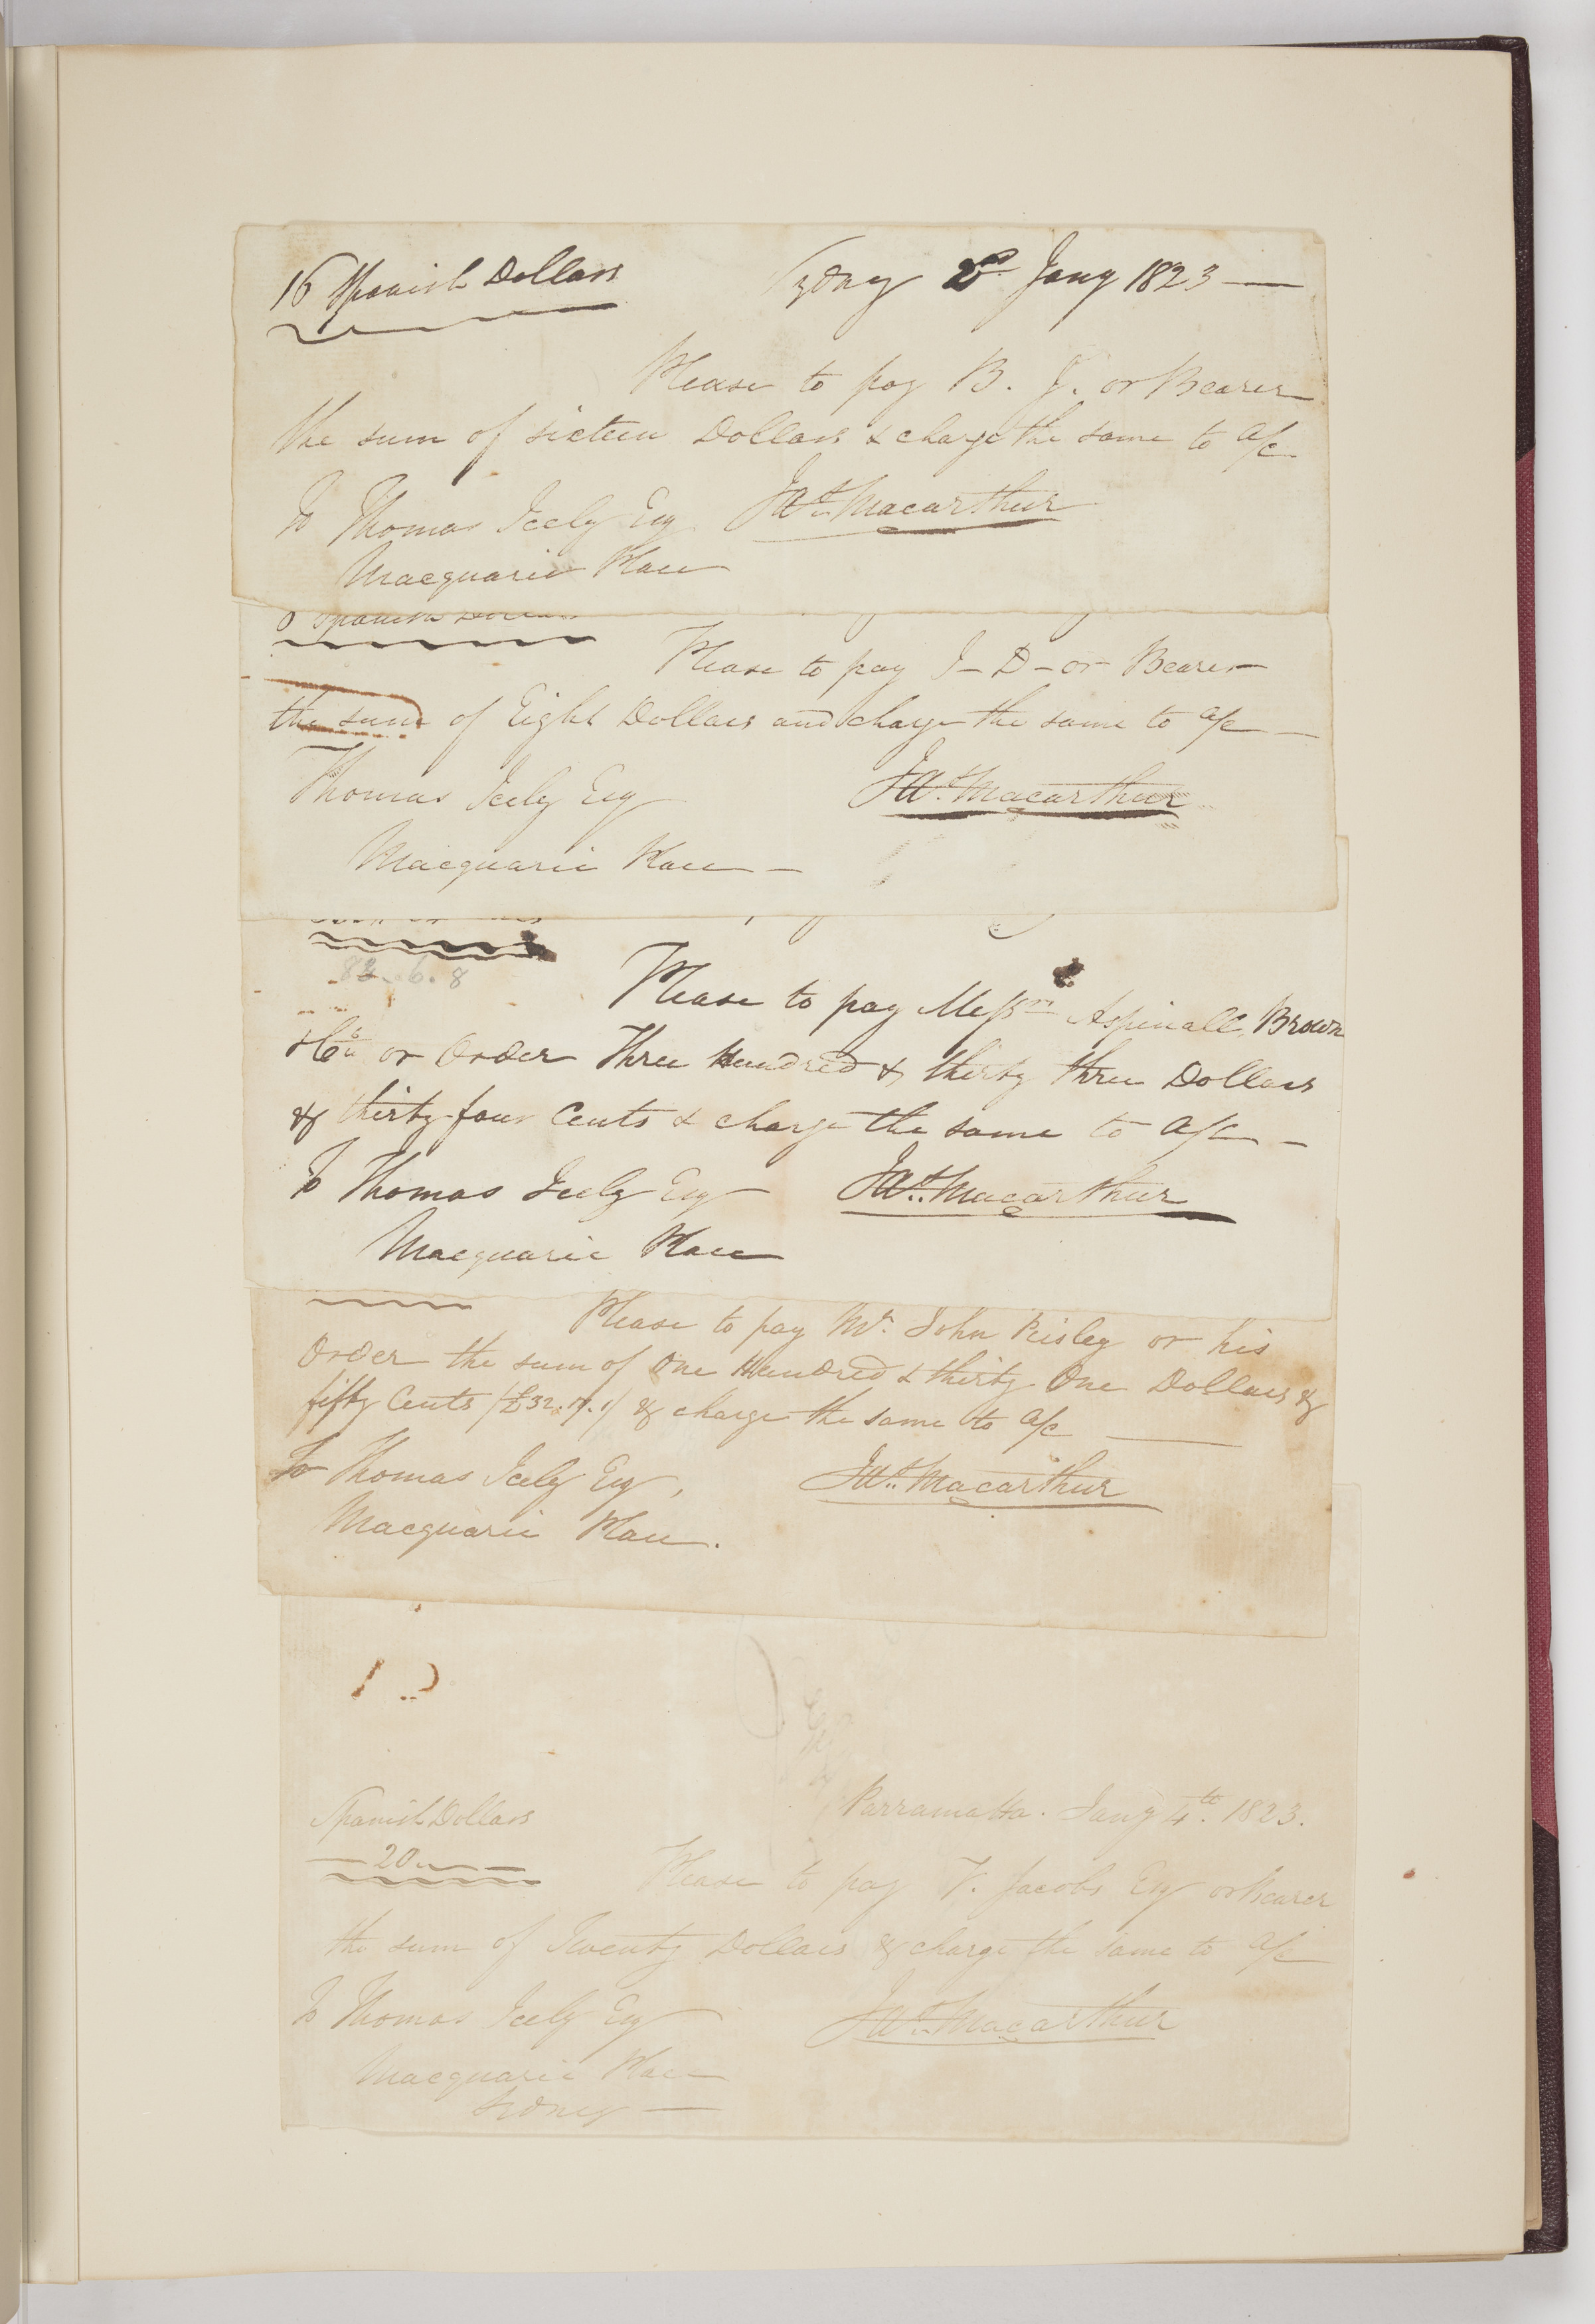 16 Spanish Dollars
Sydney 2nd Jany 1823 —
Please to pay B. J. or Bearer
the sum of sixteen Dollars & charge the same to a/c
To Thomas Icely Esq
Macquarie Place
Macarthur
8 Spanish Dollars
Please to pay I – D – or Bearer
the sum of Eight Dollars and charge the same to a/c —
Thomas Icely Esq
Macquarie Place —
Macarthur
6. 8
Please to pay Messrs Aspinall, Brown
& Co or Order Three Hundred & thirty three Dollars
& thirty-four Cents & charge the same to a/c —
To Thomas Icely Esq
Macquarie Place
Macarthur
Please to pay Mr. John Risley or his
Order the sum of One Hundred & thirty One Dollars &
fifty Cents (£32.17.6) & charge the same to a/c —
To Thomas Icely Esq,
Macquarie Place.
Macarthur
Spanish Dollars
— 20 —
Parramatta. Jany 4th. 1823.
Please to pay V. Jacobs Esq or Bearer
the sum of Twenty Dollars & charge the same to a/c
To Thomas Icely Esq
Macquarie Place
Sydney —
Macarthur